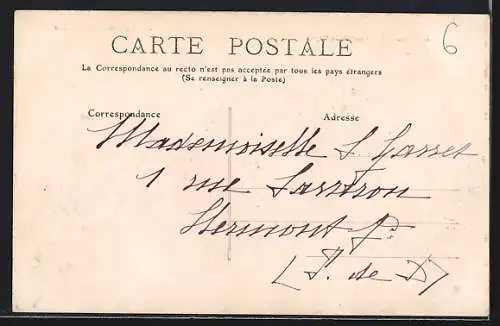 CARTE POSTALE
6
La Correspondance au recto n'est pas acceptée par tous les pays étrangers
(Se renseigner à la Poste)
Correspondance
Adresse
Mademoiselle S. Gasset
1 rue
Clermont Fd.
(P. de D)